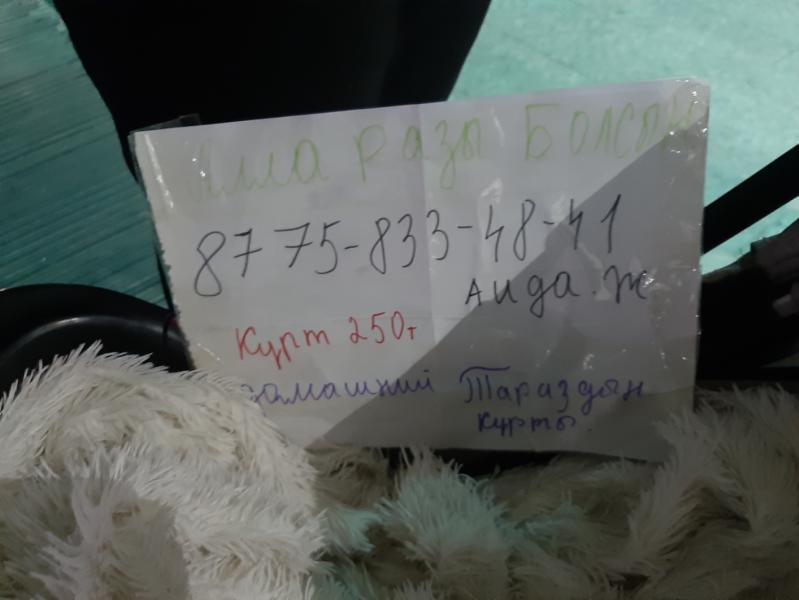 Алла разы Болсын
8775-833-48-41
Аида.Ж
Курт 250т
домашний Тараздын
курты.